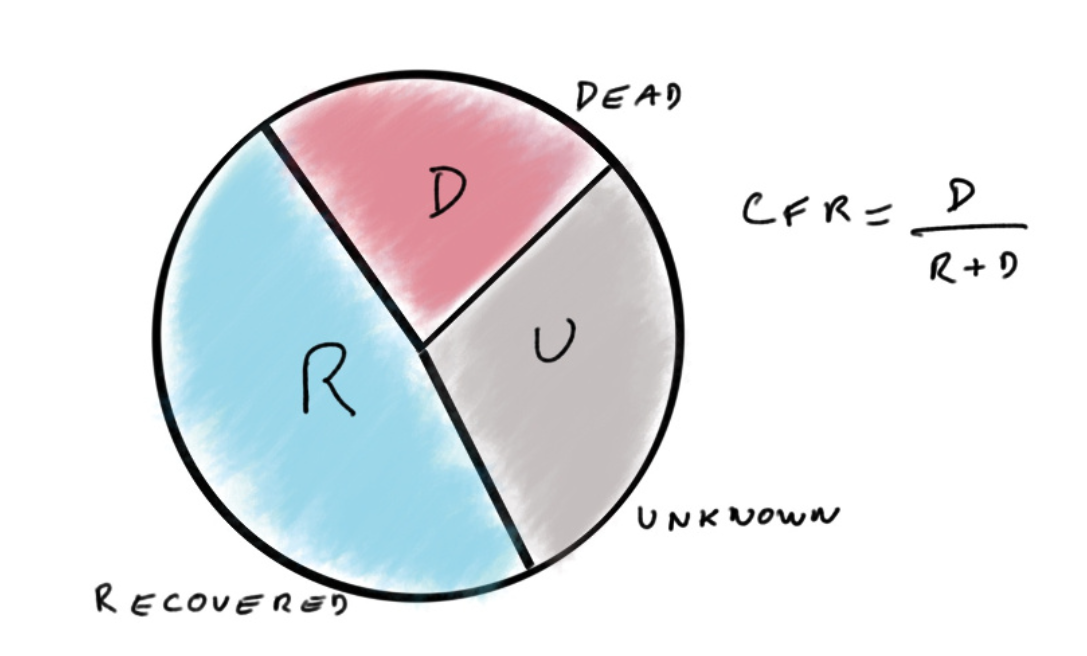 DEAD
D
CFR = D
R + D
U
R
UNKNOWN
RECOVERED